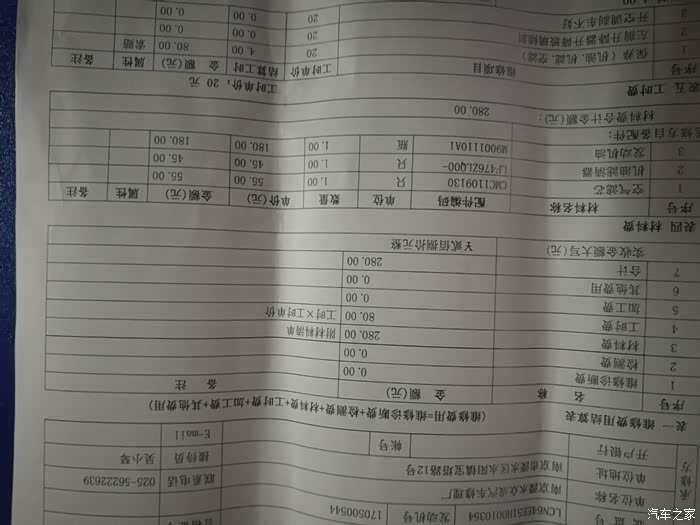 LCN648E51H0010354 发动机号 170500544
单位名称 南京溧水众成汽车修理厂
单位地址 南京市溧水区永阳镇宝塔路12号 联系电话 025-56222639
开户银行 帐号 接待员 吴小琴
E-mail
表一 维修费用结算表 (维修费用=维修诊断费+检测费+材料费+工时费+加工费+其他费用)
序号 名 称 金 额(元) 备 注
1 维修诊断费 0.00
2 检测费 0.00
3 材料费 280.00 附材料清单
4 工时费 80.00 工时×工时单价
5 加工费 0.00
6 其他费用 0.00
7 合计 280.00
实收金额大写(元) ￥贰佰捌拾元整
表四 材料费
序号 材料名称 配件编码 单位 数量 单价(元) 金额(元) 属性 备注
1 空气滤芯 CMC1109130 只 1.00 55.00 55.00
2 机油滤清器 LF476ZLQ000- 只 1.00 45.00 45.00
3 发动机油 M9001110A1 瓶 1.00 180.00 180.00
修方自备配件:
材料费合计金额(元): 280.00
表五 工时费 工时单价: 20 元
序号 维修项目 工时单价 结算工时 金 额(元) 属性 备注
1 保养(机油.机滤.空滤) 20 4.00 80.00 索赔
2 左前升降器升降玻璃 20 0.00
3 开空调刹车不好 20 0.00 0.00
汽车之家